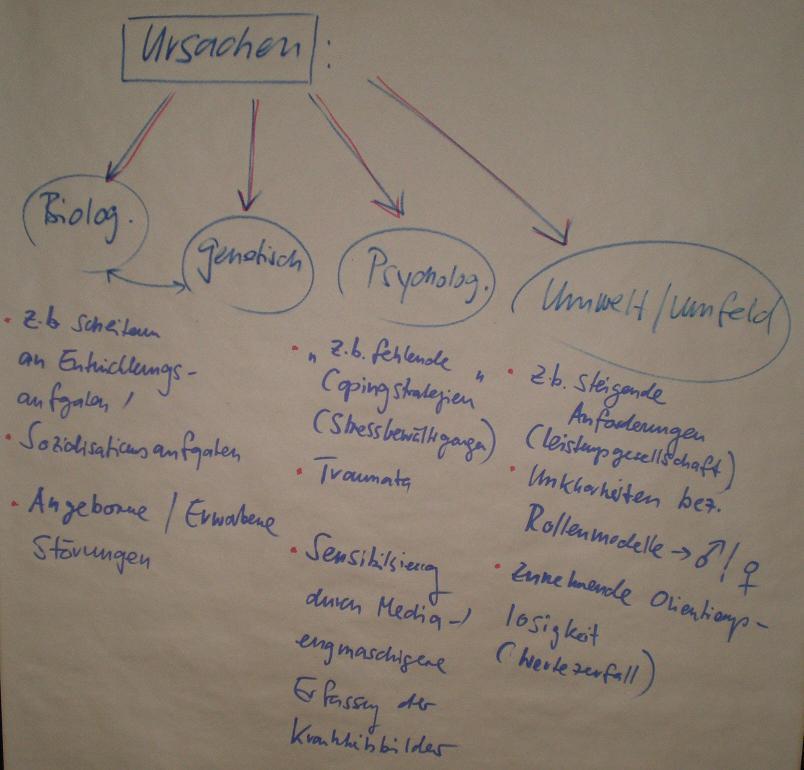 Ursachen:
Biolog.
genetisch
Psycholog.
Umwelt/Umfeld
• z.b Scheitern
an Entwicklungs-
aufgaben /
• Sozialisationsaufgaben
• Angeborene / Erworbene
Störungen
• „ z.b. fehlende
Copingstrategien "
(Stressbewältigungen)
• Traumata
• Sensibilisierung
durch Media -/
engmaschigere
Erfassung der
Krankheitsbilder
• z.b. steigende
Anforderungen
(Leistungsgesellschaft)
• Unklarheiten bez.
Rollenmodelle → ♂/♀
• Zunehmende Orientierungs-
losigkeit
(Wertezerfall)